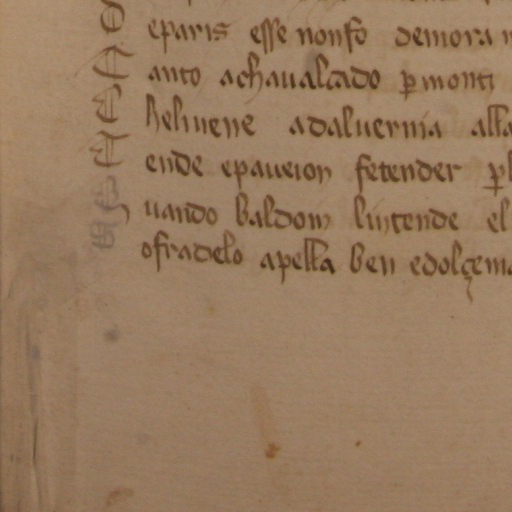 D eparis esse nonfo demora
T anto achaualcado ꝑ monti
E heluene adaluernia alla
T ende epaueion fetender ꝑ
Q uando baldoin lintende el
S ofradelo apella ben edolçema